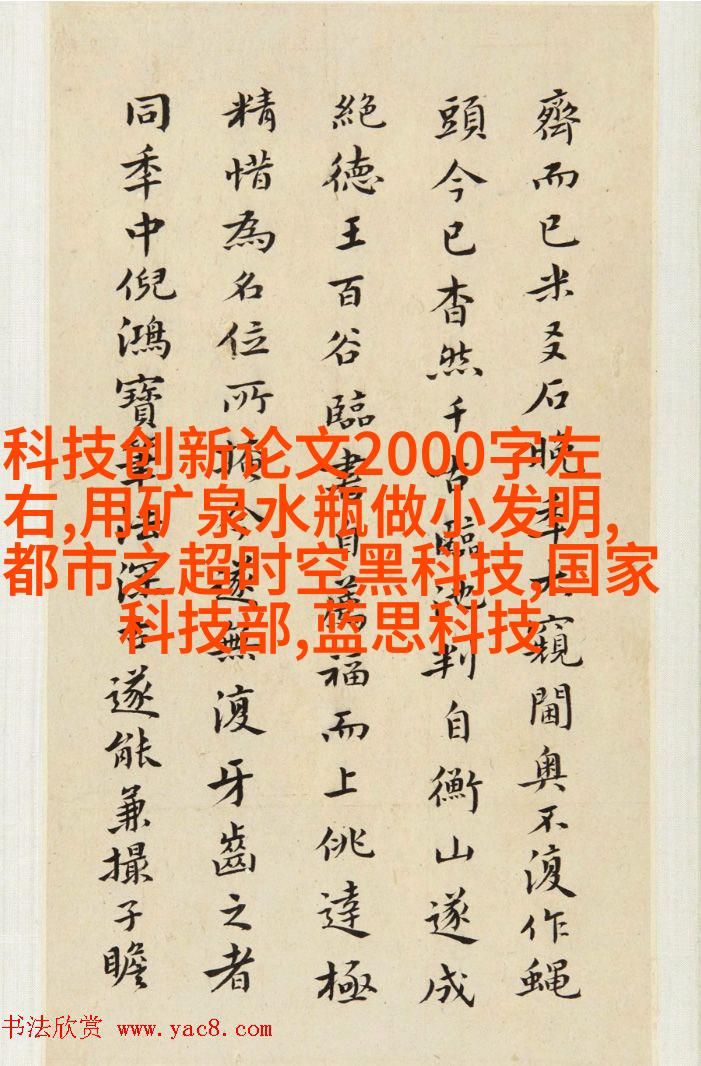 齊而已米友石晚年大窺閫奧不復作蝇
頭今已杳然千古臨池判自衡山遂成
絶德王百谷臨書自萬福而上佻達極
精惜為名位所掩今遂無復牙齒之者
同年中倪鴻寶筆法深古遂能兼撮子瞻
科技创新论文2000字左
右,用矿泉水瓶做小发明,
都市之超时空黑科技,国家
科技部,蓝思科技
书法欣赏 www.yac8.com